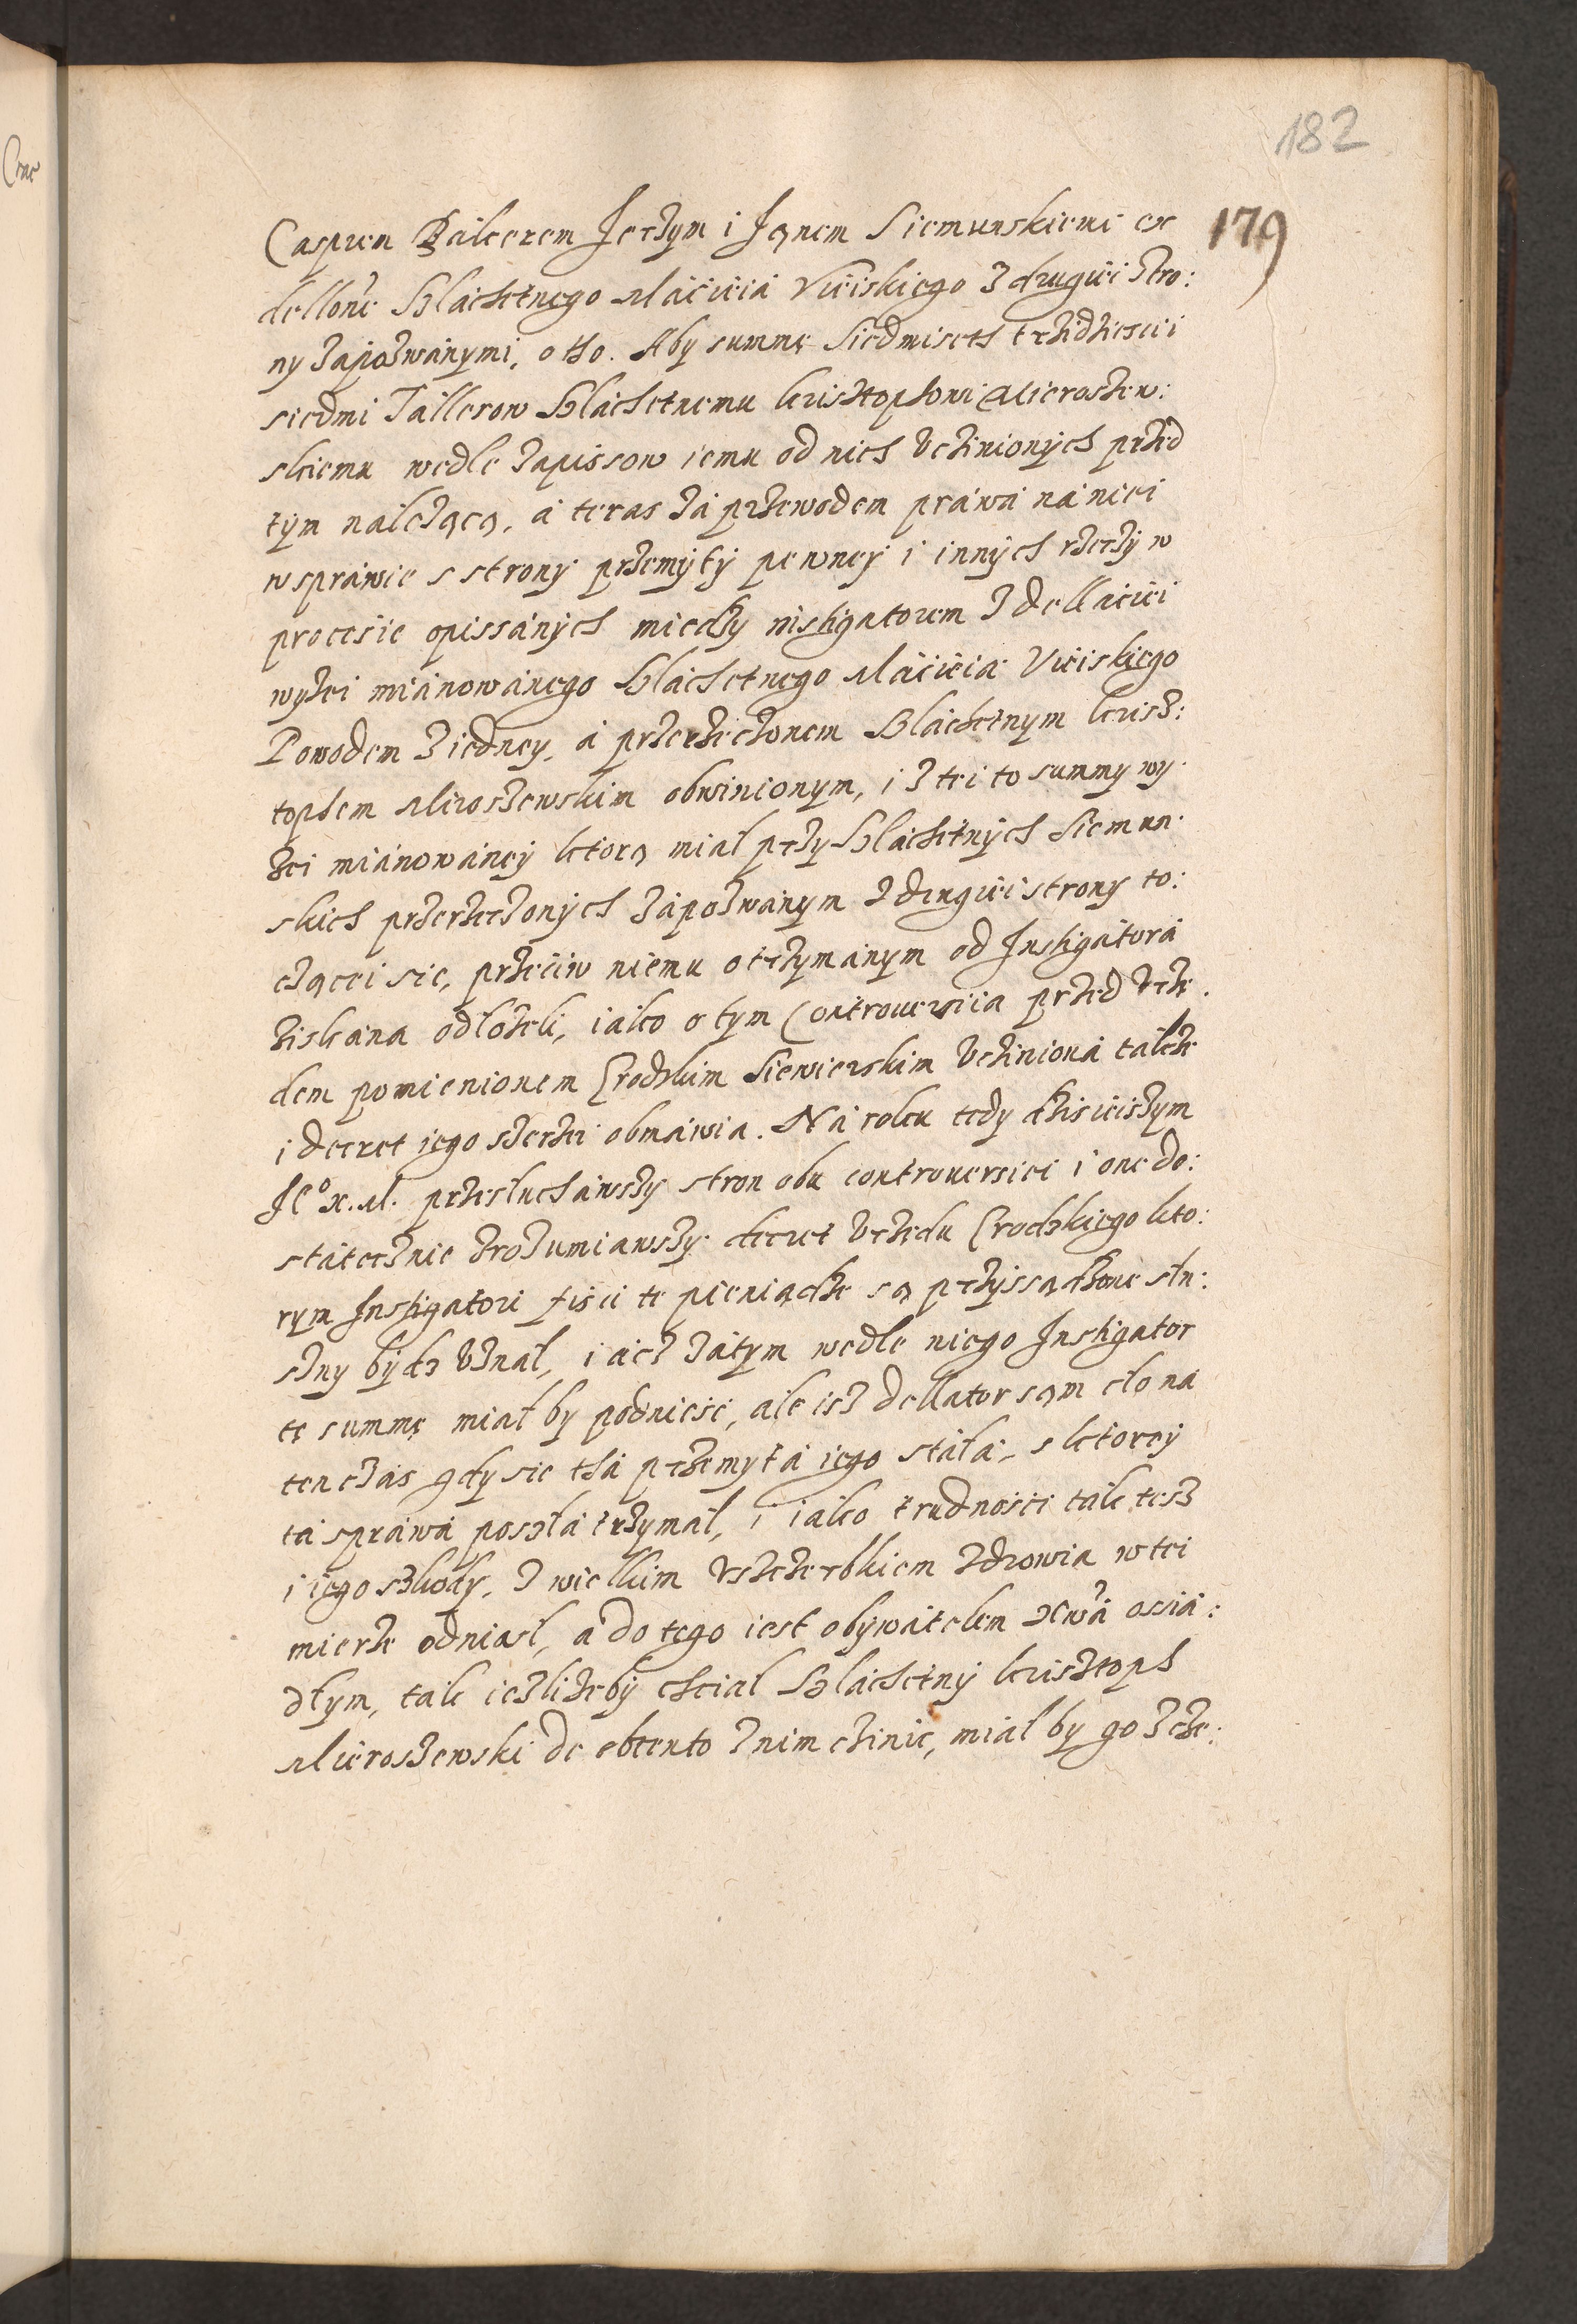 182
179
Casprem Balcerem Jerzym i Janem Siemunskiemi ex
dellone Szlachetnego Macieia Uieiskiego z drugiei stro:
ny zapozwanymi, o tho. Aby summę siedmiseth trzidziesci i
siedmi Tallerow Szlachetnemu Krisztophowi Mieroszew:
skiemu wedle zapissow iemu od nich uczinionych przed
tym należącą, a teras za przewodem prawa na niei
w sprawie s strony przemyty pewney i innych rzeczy w
procesie opissanych miedzy instigatorem z dellaciei
wyżei mianowanego Szlachetnego Macieia Uieiskiego
Powodem z iedney, a przerzeczonem Szlachetnym Krisz:
tophem Miroszewskim obwinionym, i z tei to summy wy:
żei mianowaney ktorą miał przy Szlachetnych Siemun:
skich przerzeczonych zapozwanym z drugiei strony to:
czącei sie, przeciw niemu otrzymanym od Instigatora
ziskana odłożeli, iako o tym Controuersiia przed urzę:
dem pomienionem Grodzkim Siewierskim uczyniona także
i decret iego szerzei obmawia. Na roku tedy dzisieiszym
Je° X. M. przesłuchawszy stron obu controuersiei i one do:
statecznie zrozumiawszy decret urzędu Grodzkiego kto:
rym Instigatori tisci te pieniądze są przyssądzone słu:
szny bydz uznał, i acz zatym wedle niego Instigator
te summę miał by podniesc, ale isz dellator sąm cło na
ten czas gdy sie tha przemyta iego stała, s ktorey
ta sprawa poszła trzymał, i iako trudnosci tak tesz
i iego szkody, z wielkim uszczerbkiem zdrowia w tei
mierze odniasł, a do tego iest obywatelem Xtwa ossia:
dłym, tak ieżliżeby chciał Szlachetny Krisztoph
Mieroszewski de obtento z nim czinic, miał by go zcze: